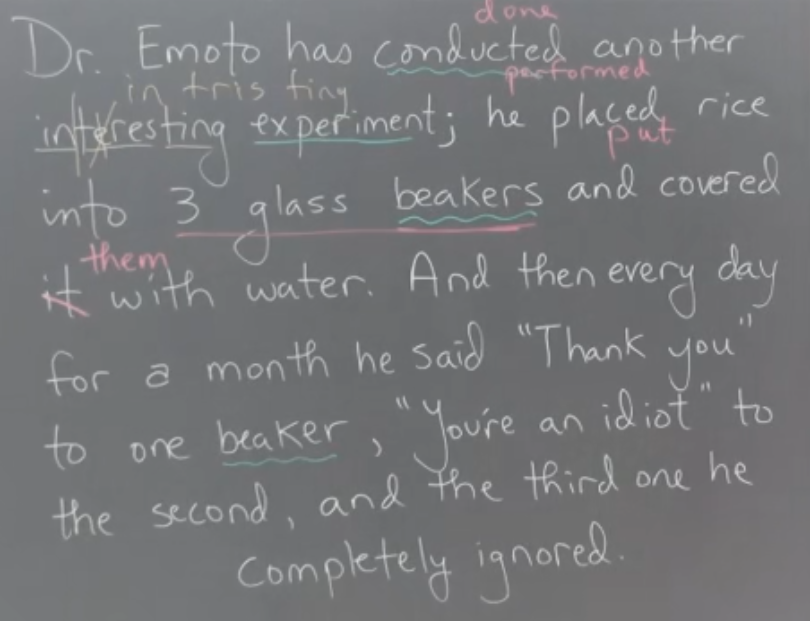 done
Dr. Emoto has conducted another
performed
in tris tiny
interesting experiment; he placed rice
put
into 3 glass beakers and covered
them
it with water. And then every day
for a month he said "Thank you"
to one beaker, "You're an idiot" to
the second, and the third one he
completely ignored.